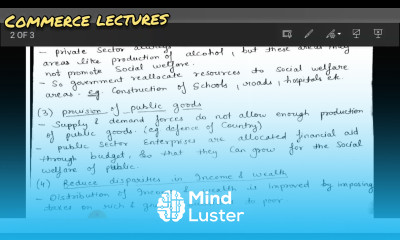 COMMERCE LECTURES
2 OF 3
- private sector always
areas like production of alcohol, but these areas may
not promote Social welfare.
- So government reallocate resources to social welfare
areas. eg. Construction of Schools, roads, hospitals etc.
(3) provision of public goods
- Supply & demand forces do not allow enough production
of public goods. (eg defence of Country)
- public Sector Enterprises are allocated financial aid
through budget, so that they can grow for the Social
welfare of public.
(4) Reduce disparities in Income & wealth
- Distribution of Income & wealth is improved by imposing
taxes on rich & to poor
Mind
Luster